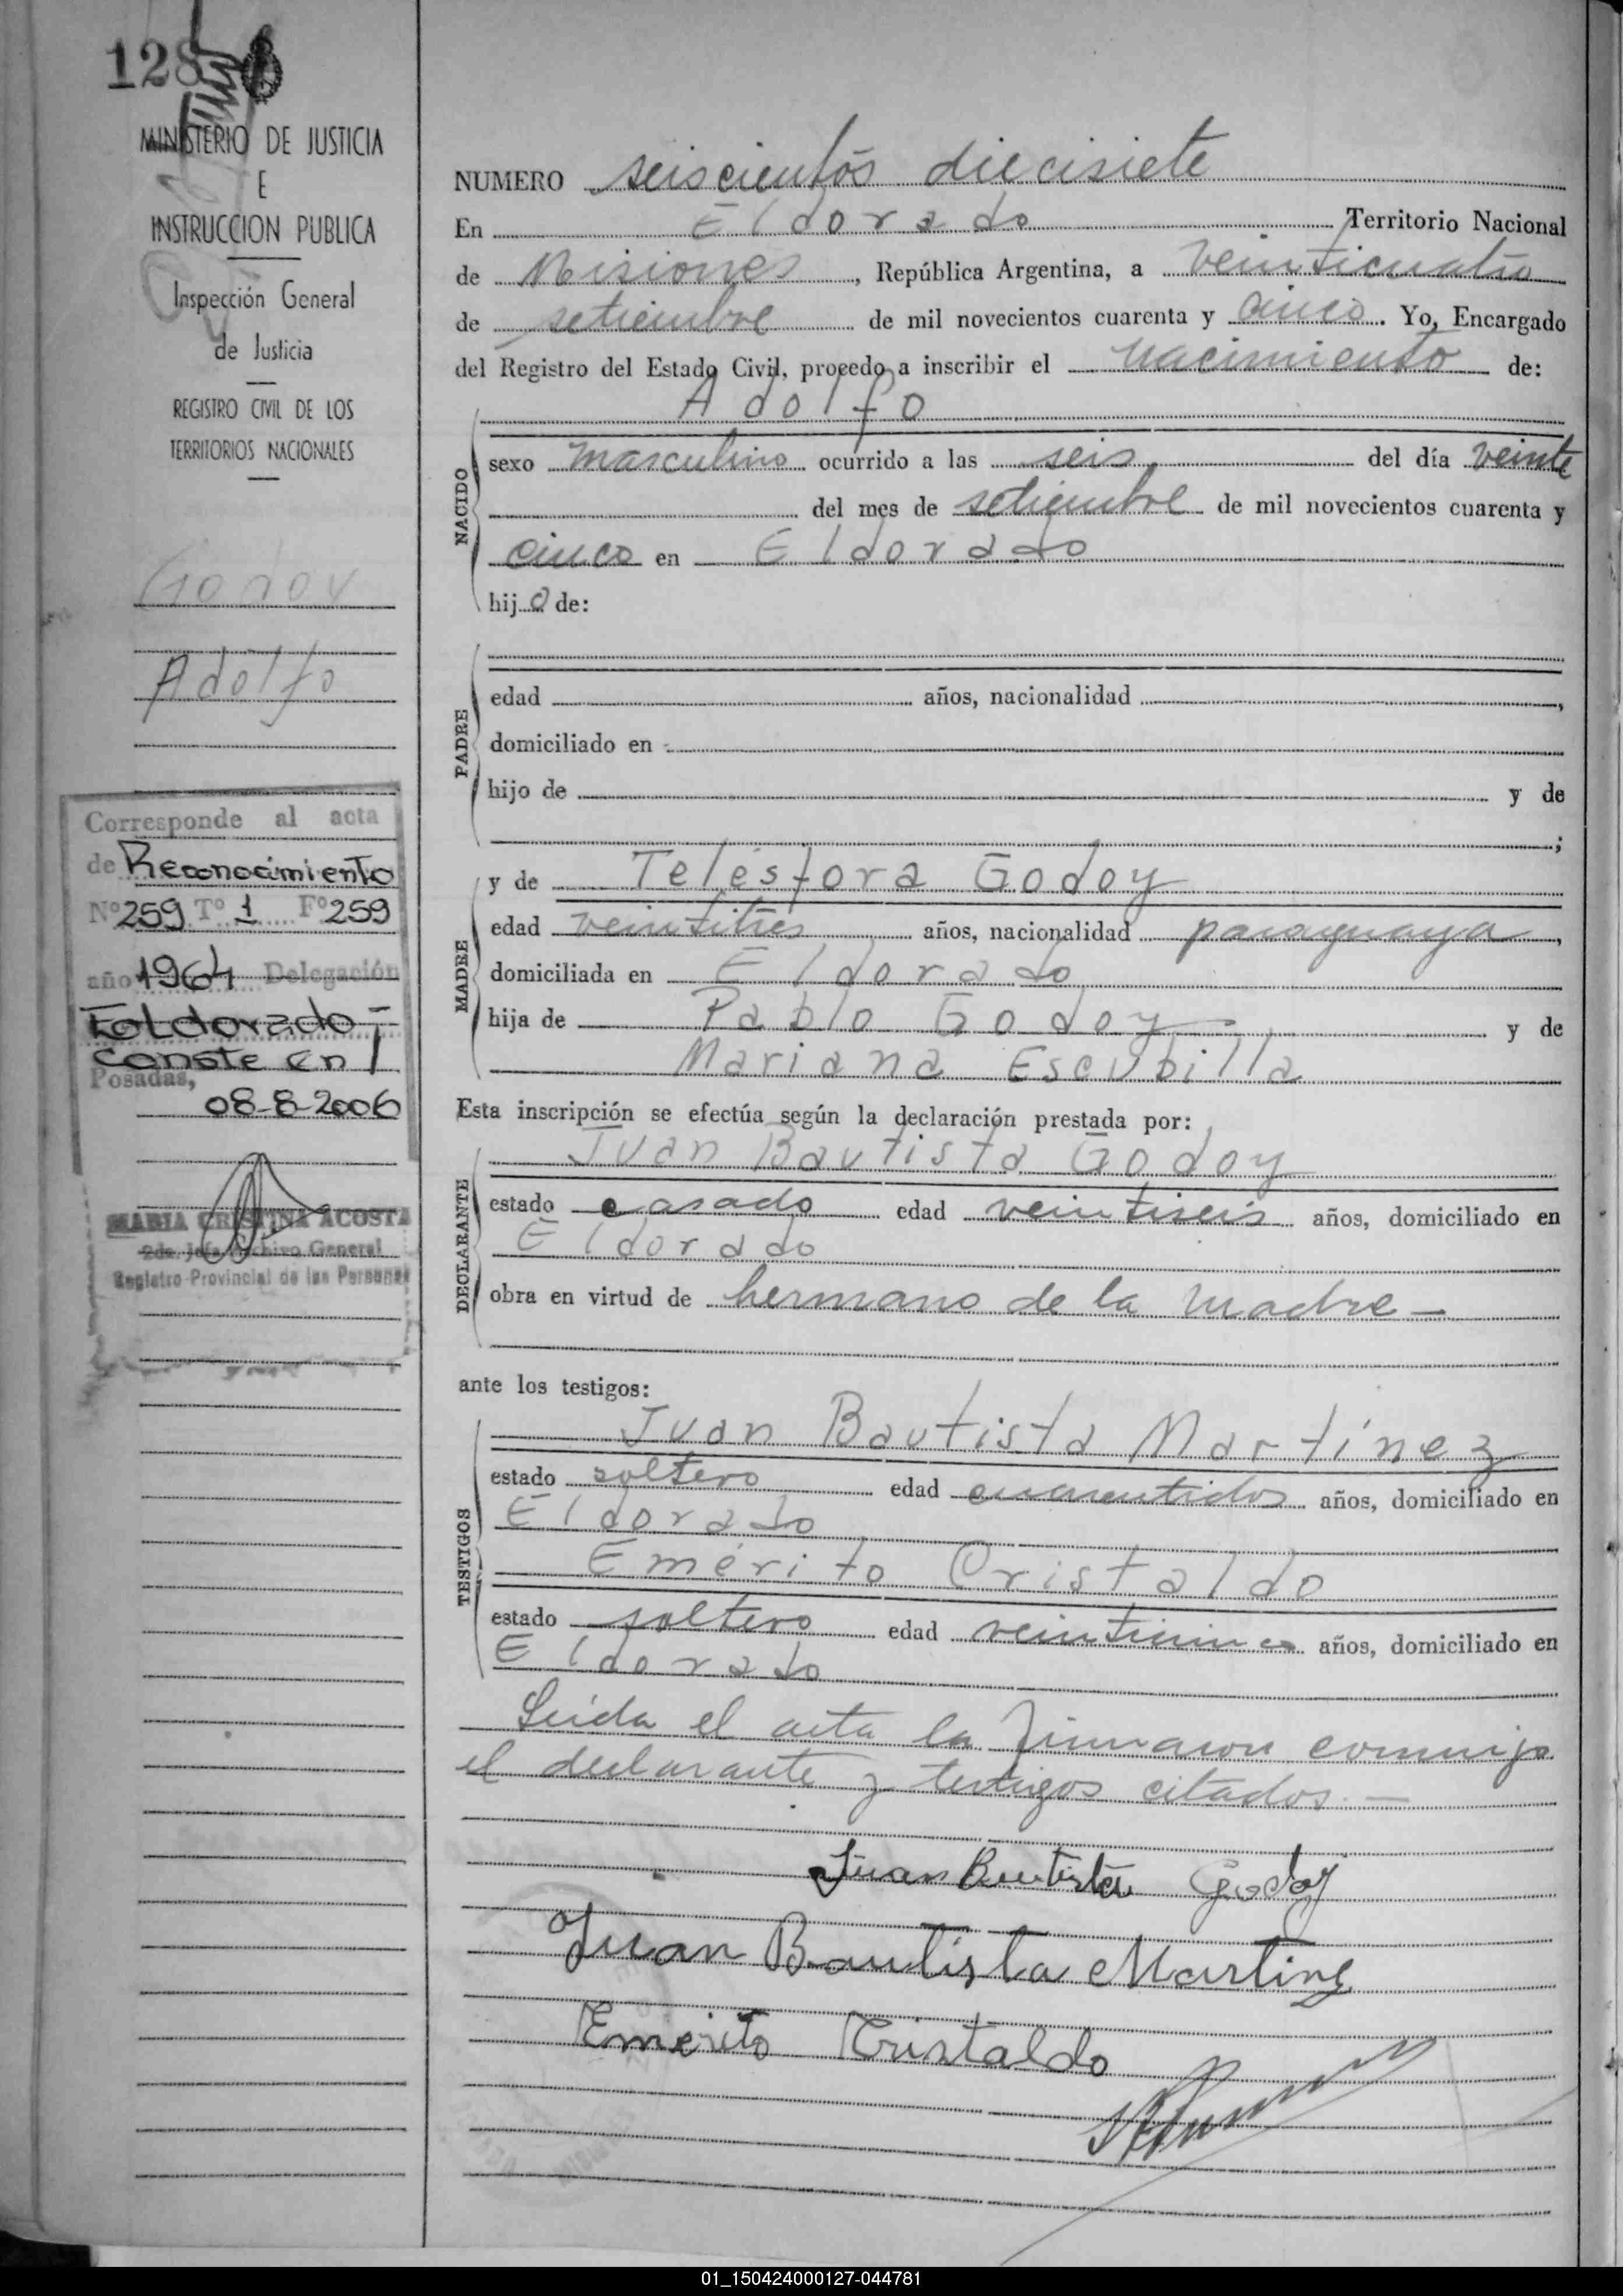 128
MINISTERIO DE JUSTICIA
E
INSTRUCCION PUBLICA
Inspección General
de Justicia
REGISTRO CIVIL DE LOS
TERRITORIOS NACIONALES
Godoy
Adolfo
Corresponde al acta
de Reconocimiento
Nº 259 Tº 1 Fº 259
año 1964 Delegación
Eoldorado-
conste en
Posadas,
08-8-2006
MARIA CRISTINA ACOSTA
2da. Jefa Archivo General
Registro Provincial de las Personas
NUMERO seiscientos diecisiete
En Eldorado Territorio Nacional
de Misiones, República Argentina, a veinticuatro
de setiembre de mil novecientos cuarenta y cinco. Yo, Encargado
del Registro del Estado Civil, procedo a inscribir el nacimiento de:
Adolfo
NACIDO
sexo masculino ocurrido a las seis del día veinte
del mes de setiembre de mil novecientos cuarenta y
cinco en Eldorado
hijo de:
PADRE
edad años, nacionalidad ,
domiciliado en
hijo de y de
;
MADRE
y de Telésfora Godoy
edad veintitres años, nacionalidad paraguaya,
domiciliada en Eldorado
hija de Pablo Godoy y de
Mariana Escubilla
Esta inscripción se efectúa según la declaración prestada por:
DECLARANTE
Juan Bautista Godoy
estado casado edad veintiseis años, domiciliado en
Eldorado
obra en virtud de hermano de la madre-
ante los testigos:
TESTIGOS
Juan Bautista Martínez
estado soltero edad cuarentidos años, domiciliado en
Eldorado
Emérito Cristaldo
estado soltero edad años, domiciliado en
Eldorado
Leida el acta la firmaron conmigo
el declarante y testigos citados.-
Juan Bautista Godoy
Juan Bautista Martinez
Emerito Cristaldo
01_150424000127-044781